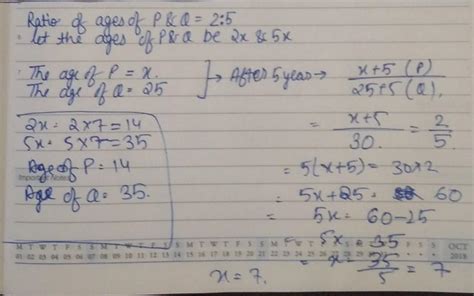 Ratio of ages of P & Q = 2:5
let the ages of P & Q be 2x & 5x
The age of P = x.
The age of Q = 25
→ After 5 years →
x+5 (P)
25+5 (Q).
= x+5 = 2
30. 5.
= 5(x+5) = 30×2
= 5x + 25 = 60
= 5x = 60-25
= 5x = 35
= x = 35 = 7
5
x = 7.
2x = 2×7 = 14
5x = 5×7 = 35
Age of P = 14
Important Notes
Age of Q = 35.
M T W T F S S M T W T F S S M T W T F S S M T W T F S S M T W
01 02 03 04 05 06 07 08 09 10 11 12 13 14 15 16 17 18 19 20 21 22
OCT
2018